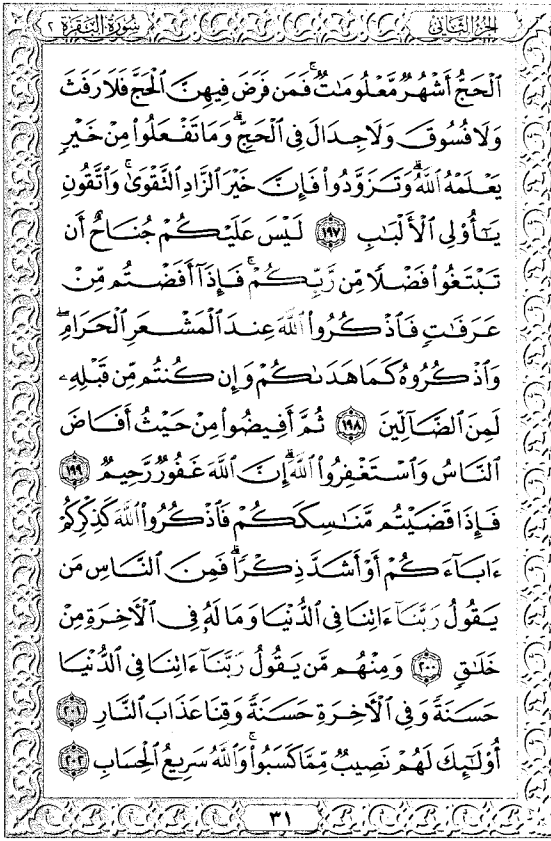 الجزء الثاني
سورة البقرة ٢
ٱلۡحَجُّ أَشۡهُرٞ مَّعۡلُومَٰتٞۚ فَمَن فَرَضَ فِيهِنَّ ٱلۡحَجَّ فَلَا رَفَثَ
وَلَا فُسُوقَ وَلَا جِدَالَ فِي ٱلۡحَجِّۗ وَمَا تَفۡعَلُواْ مِنۡ خَيۡرٖ
يَعۡلَمۡهُ ٱللَّهُۗ وَتَزَوَّدُواْ فَإِنَّ خَيۡرَ ٱلزَّادِ ٱلتَّقۡوَىٰۚ وَٱتَّقُونِ
يَٰٓأُوْلِي ٱلۡأَلۡبَٰبِ ١٩٧ لَيۡسَ عَلَيۡكُمۡ جُنَاحٌ أَن
تَبۡتَغُواْ فَضۡلٗا مِّن رَّبِّكُمۡۚ فَإِذَآ أَفَضۡتُم مِّنۡ
عَرَفَٰتٖ فَٱذۡكُرُواْ ٱللَّهَ عِندَ ٱلۡمَشۡعَرِ ٱلۡحَرَامِۖ
وَٱذۡكُرُوهُ كَمَا هَدَىٰكُمۡ وَإِن كُنتُم مِّن قَبۡلِهِۦ
لَمِنَ ٱلضَّآلِّينَ ١٩٨ ثُمَّ أَفِيضُواْ مِنۡ حَيۡثُ أَفَاضَ
ٱلنَّاسُ وَٱسۡتَغۡفِرُواْ ٱللَّهَۚ إِنَّ ٱللَّهَ غَفُورٞ رَّحِيمٞ ١٩٩
فَإِذَا قَضَيۡتُم مَّنَٰسِكَكُمۡ فَٱذۡكُرُواْ ٱللَّهَ كَذِكۡرِكُمۡ
ءَابَآءَكُمۡ أَوۡ أَشَدَّ ذِكۡرٗاۗ فَمِنَ ٱلنَّاسِ مَن
يَقُولُ رَبَّنَآ ءَاتِنَا فِي ٱلدُّنۡيَا وَمَا لَهُۥ فِي ٱلۡأٓخِرَةِ مِنۡ
خَلَٰقٖ ٢٠٠ وَمِنۡهُم مَّن يَقُولُ رَبَّنَآ ءَاتِنَا فِي ٱلدُّنۡيَا
حَسَنَةٗ وَفِي ٱلۡأٓخِرَةِ حَسَنَةٗ وَقِنَا عَذَابَ ٱلنَّارِ ٢٠١
أُوْلَٰٓئِكَ لَهُمۡ نَصِيبٞ مِّمَّا كَسَبُواْۚ وَٱللَّهُ سَرِيعُ ٱلۡحِسَابِ ٢٠٢
٣١